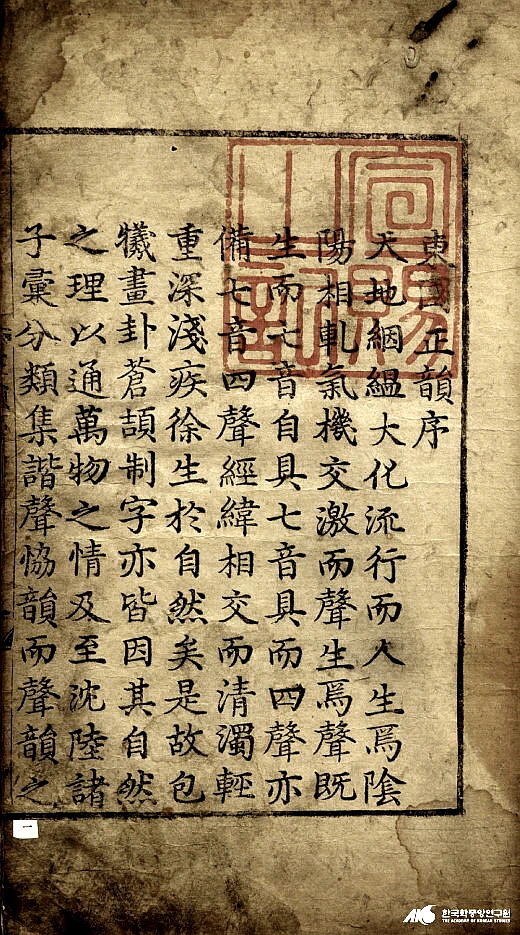 東國正韻序
天地絪縕大化流行而人生焉陰
陽相軋氣機交激而聲生焉聲既
生而七音自具七音具而四聲亦
備七音四聲經緯相交而清濁輕
重深淺疾徐生於自然矣是故包
犧畫卦蒼頡制字亦皆因其自然
之理以通萬物之情及至沈陸諸
子彙分類集諧聲恊韻而聲韻之
宣賜
之記
一
AKS 한국학중앙연구원
THE ACADEMY OF KOREAN STUDIES